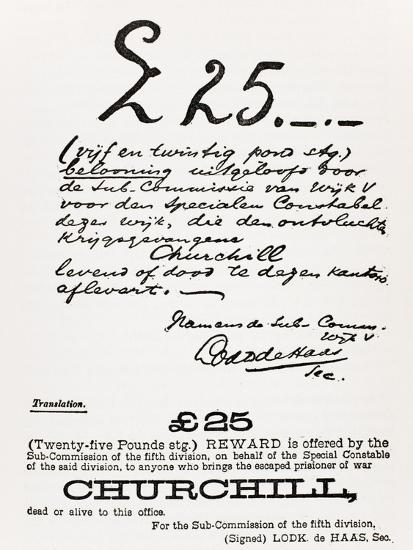 £ 25.-.-
(vijf en twintig pond stg.)
belooning uitgeloofd door
de Sub-Commissie van Wijk V
voor den Specialen Constabel
dezer wijk, die den ontvluchte
Krijgsgevangene
Churchill
levend of dood te dezen kantore
aflevert. —
Namens de Sub-Comm.
Wijk V
Lodk de Haas
Sec.
Translation.
£25
(Twenty-five Pounds stg.) REWARD is offered by the
Sub-Commission of the fifth division, on behalf of the Special Constable
of the said division, to anyone who brings the escaped prisioner of war
CHURCHILL,
dead or alive to this office.
For the Sub-Commission of the fifth division,
(Signed) LODK. de HAAS, Sec.